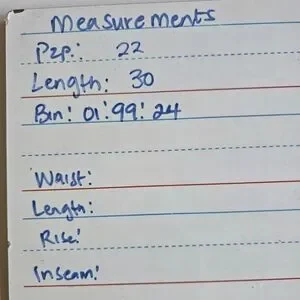 Measurements
P2P: 22
Length: 30
Bin: 01:99:24
Waist:
Length:
Rise:
Inseam: